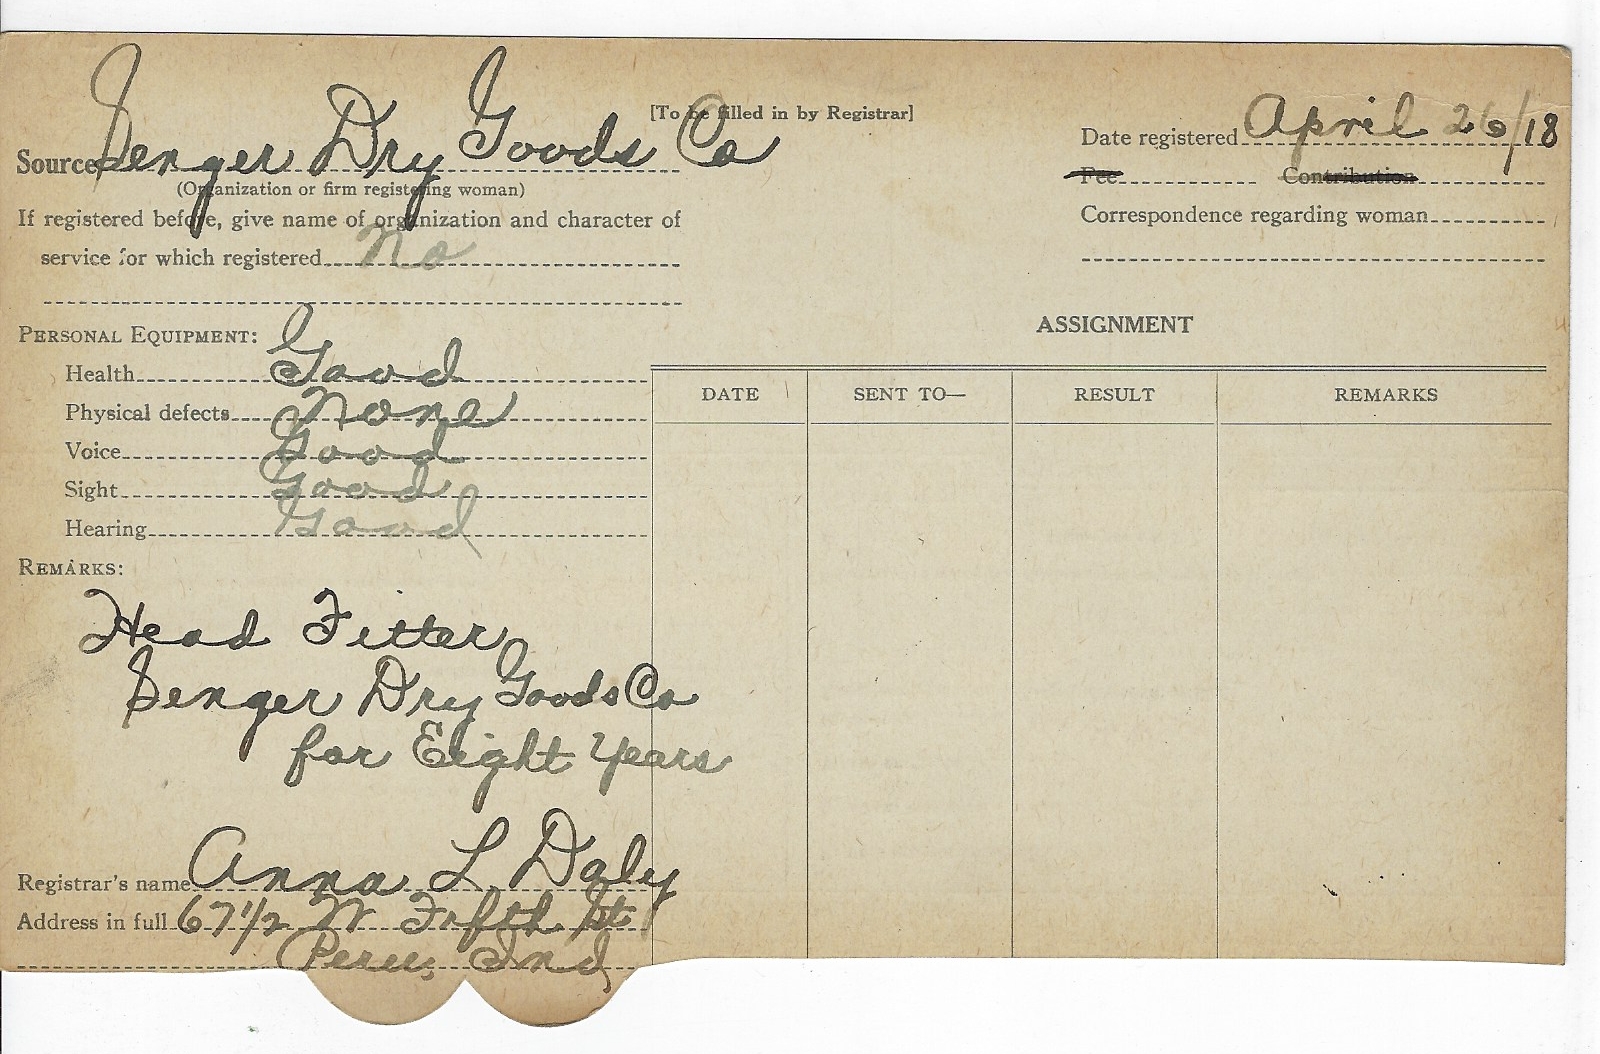 [To be filled in by Registrar]
Source Senger Dry Goods Co
(Organization or firm registering woman)
If registered before, give name of organization and character of
service for which registered No
Date registered April 26/18
Fee Contribution
Correspondence regarding woman
PERSONAL EQUIPMENT:
Health Good
Physical defects None
Voice Good
Sight Good
Hearing Good
REMARKS:
Head Fitter
Senger Dry Goods Co
for Eight Years
Registrar's name Anna L Daly
Address in full 67 1/2 W Fifth St
Peru, Ind
ASSIGNMENT
DATE SENT TO— RESULT REMARKS